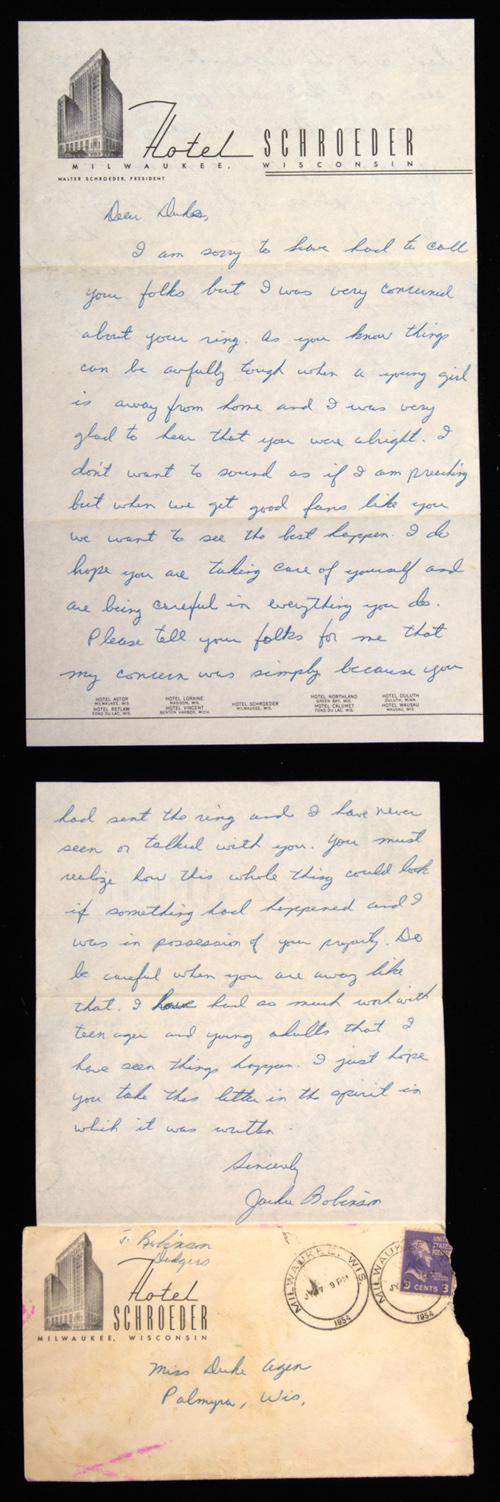 Hotel SCHROEDER
MILWAUKEE, WISCONSIN
WALTER SCHROEDER, PRESIDENT
Dear Duke,
I am sorry to have had to call
your folks but I was very concerned
about your ring. As you know things
can be awfully tough when a young girl
is away from home and I was very
glad to hear that you were alright. I
don't want to sound as if I am preaching
but when we get good fans like you
we want to see the best happen. I do
hope you are taking care of yourself and
are being careful in everything you do.
Please tell your folks for me that
my concern was simply because you
HOTEL ASTOR
MILWAUKEE, WIS.
HOTEL RETLAW
FOND DU LAC, WIS.
HOTEL LORAINE
MADISON, WIS.
HOTEL VINCENT
BENTON HARBOR, MICH.
HOTEL SCHROEDER
MILWAUKEE, WIS.
HOTEL NORTHLAND
GREEN BAY, WIS.
HOTEL CALUMET
FOND DU LAC, WIS.
HOTEL DULUTH
DULUTH, MINN.
HOTEL WAUSAU
WAUSAU, WIS.
had sent the ring and I have never
seen or talked with you. You must
realize how this whole thing could look
if something had happened and I
was in possession of your property. Do
be careful when you are away like
that. I have had so much work with
teen ager and young adults that I
have seen things happen. I just hope
you take this letter in the spirit in
which it was written.
Sincerely
Jackie Robinson
J. Robinson
Dodgers
Hotel
SCHROEDER
MILWAUKEE, WISCONSIN
MILWAUKEE, WIS
9 PM
1954
MILWAUK
1954
UNITED
STATES
3 CENTS 3
Miss Duke
Palmyra, Wis.